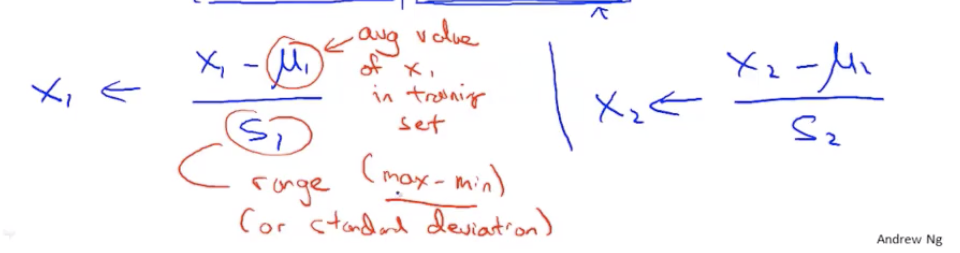 x₁ ← (x₁ - μ₁) / S₁
avg value
of x₁
in training
set
range (max - min)
(or standard deviation)
x₂ ← (x₂ - μ₂) / S₂
Andrew Ng